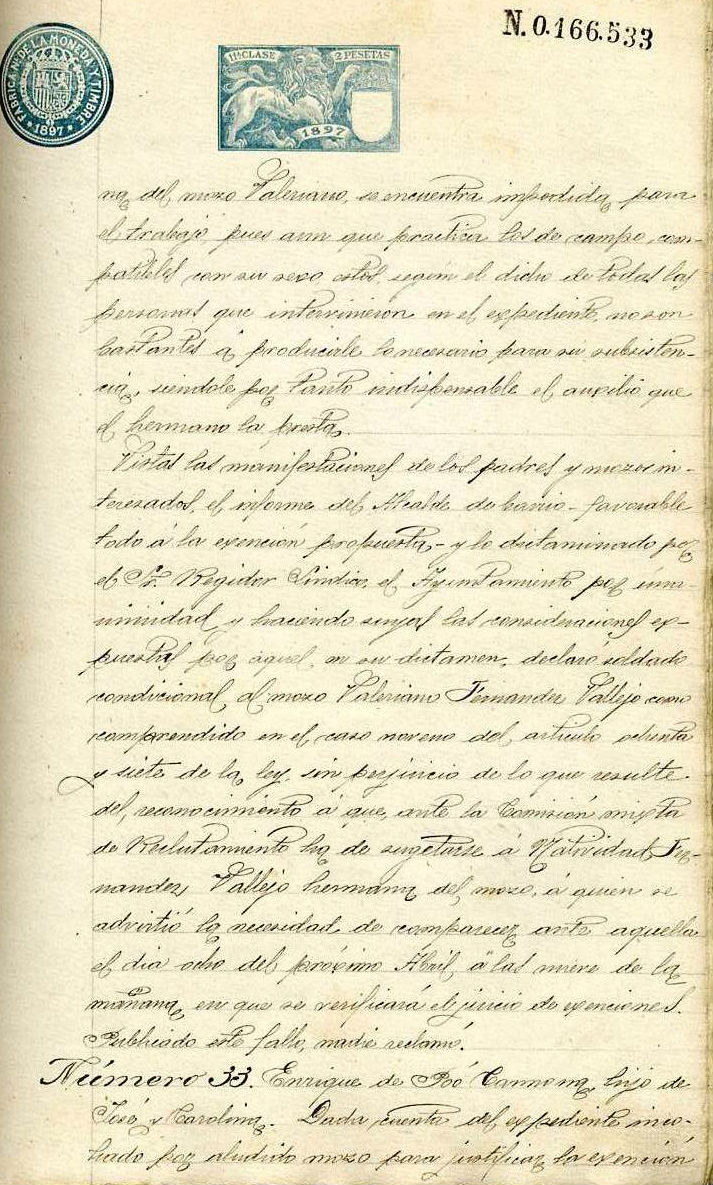 N. 0.166.533
FABRICA NAL DE LA MONEDA Y TIMBRE
* 1897 *
11ª CLASE 2 PESETAS
1897
na del mozo Valeriano, se encuentra impedida para
el trabajo, pues aun que practica los de campo, com-
patibles con su sexo, estos, segun el dicho de todas las
personas que intervinieron en el expediente, no son
bastantes á producirle lo necesario para su subsisten-
cia, siendole por tanto indispensable el auxilio que
el hermano la presta.
Vistas las manifestaciones de los padres y mozos in-
teresados, el informe del Alcalde de barrio - favorable
todo á la exención propuesta, - y lo dictaminado por
el Sr. Regidor Síndico, el Ayuntamiento por una-
nimidad y haciendo suyas las consideraciones ex-
puestas por aquel, en su dictamen, declaró soldado
condicional, al mozo Valeriano Fernandez Vallejo como
comprendido en el caso noveno del articulo ochenta
y siete de la ley, sin perjuicio de lo que resulte
del, reconocimiento á que, ante la Comisión mixta
de Reclutamiento ha de sugetarse á Natividad Fer-
nandez Vallejo hermana del mozo, á quien se
advirtió la necesidad de comparecer ante aquella
el dia ocho del próximo Abril, á las nueve de la
mañana, en que se verificará el juicio de exenciones.
Publicado este fallo, nadie reclamó.
Número 33. Enrique de Bó Carmona, hijo de
José y Carolina. Dada cuenta del expediente inco-
hado por aludido mozo para justificar la exención